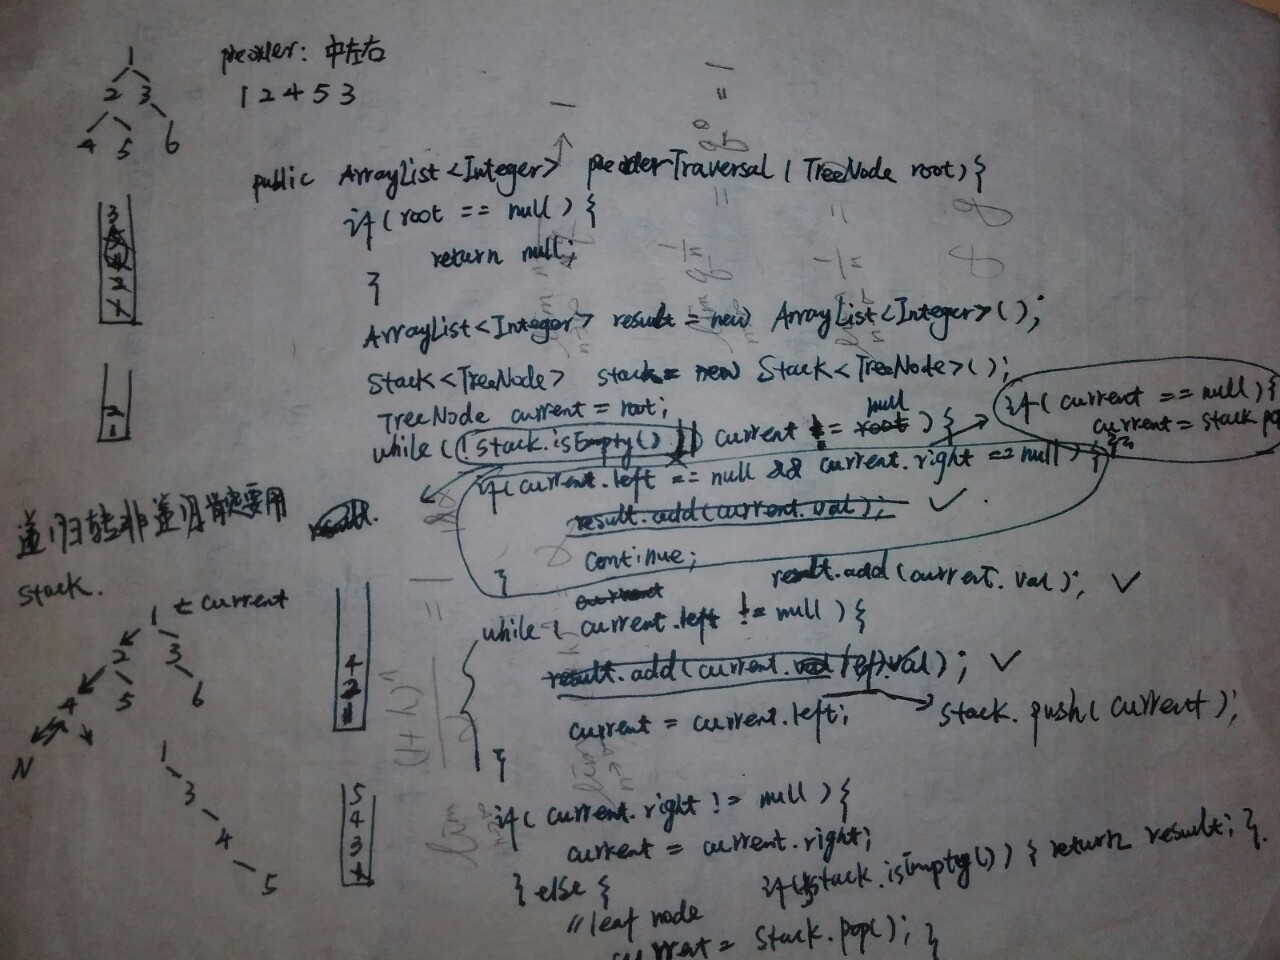 preorder: 中左右
1 2 4 5 3
1
2 3
4 5 6
public ArrayList<Integer> preorderTraversal (TreeNode root) {
if (root == null) {
return null;
}
ArrayList<Integer> result = new ArrayList<Integer>();
Stack<TreeNode> stack = new Stack<TreeNode>();
TreeNode current = root;
while (!stack.isEmpty() || current != null) {
if (current == null) {
current = stack.po
if (current.left == null && current.right == null) {
result.add(current.val);
continue;
}
result.add(current.val);
while (current.left != null) {
result.add(current.left.val);
current = current.left;
stack.push(current);
}
if (current.right != null) {
current = current.right;
} else {
if (stack.isEmpty()) { return result; }
//leaf node
current = stack.pop(); }
3
2
1
2
1
递归转非递归肯定要用
stack.
result.
1 ← current
2 3
4 5 6
N
4
2
1
1
3
4
5
5
4
3
1
lim
(1+h)